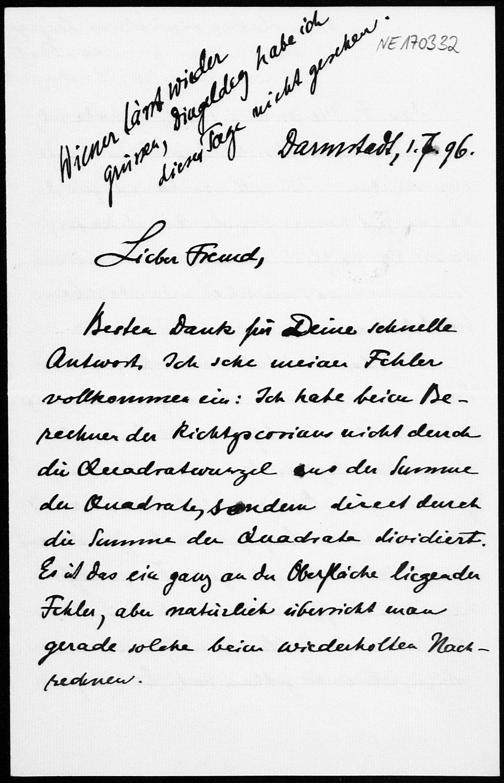 NE170332
Wiener lässt wieder
grüssen, Dingeldey habe ich
dieser Tage nicht gesehen.
Darmstadt, 1.7.96.
Lieber Freund,
Besten Dank für Deine schnelle
Antwort. Ich sehe meinen Fehler
vollkommen ein: Ich habe beim Be-
rechnen der Richtgscosinus nicht durch
die Quadratwurzel aus der Summe
der Quadrate, sondern direct durch
die Summe der Quadrate dividiert.
Es ist das ein ganz an der Oberfläche liegender
Fehler, aber natürlich übersieht man
gerade solche beim wiederholten Nach-
rechnen.